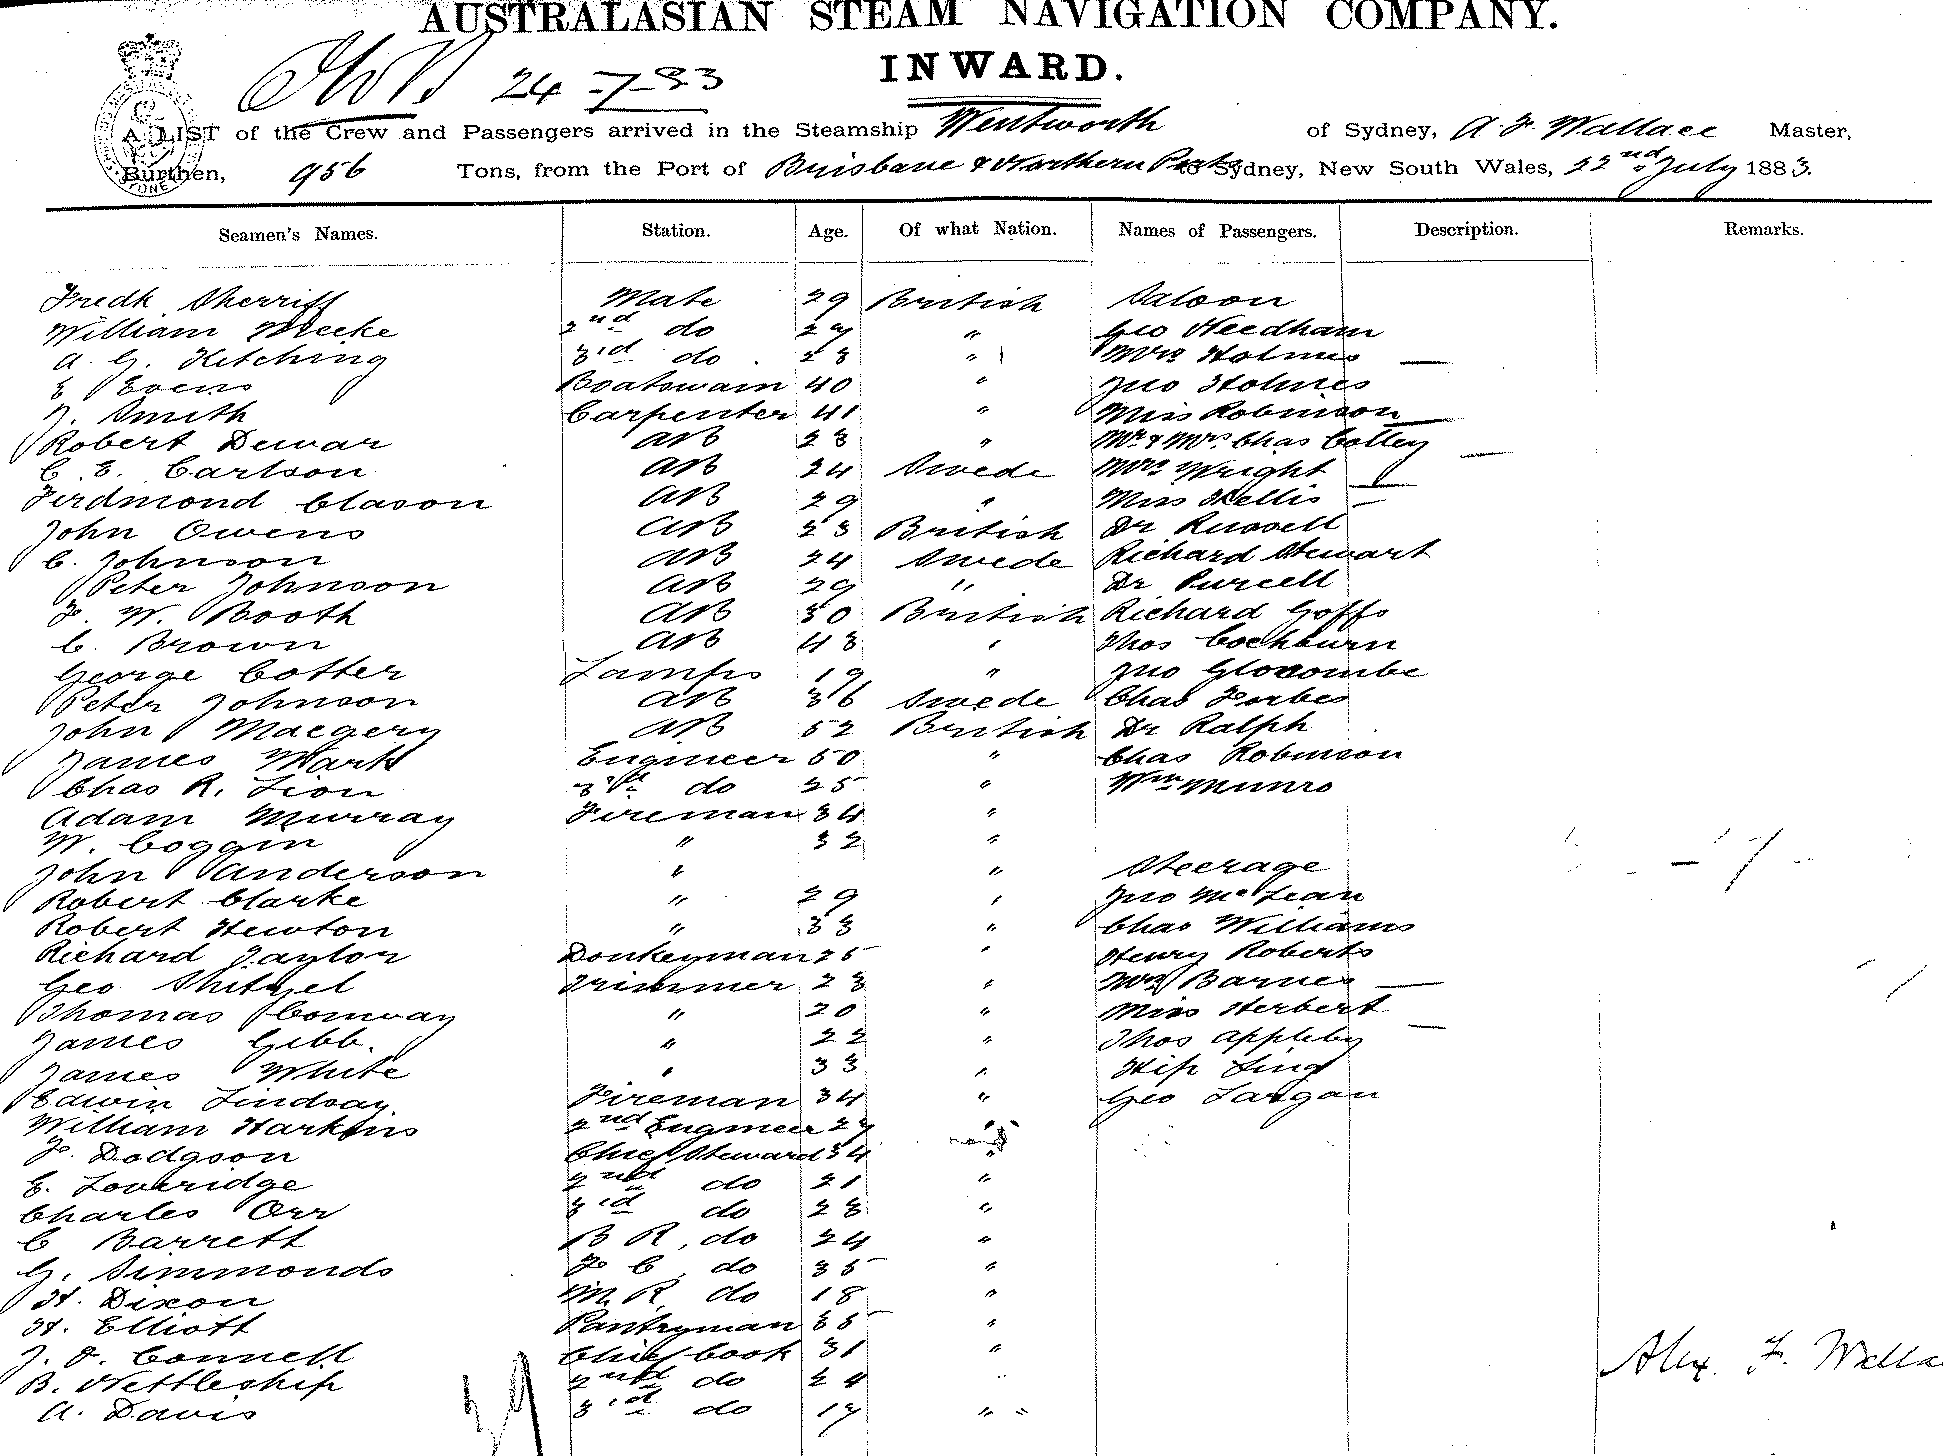 AUSTRALASIAN STEAM NAVIGATION COMPANY.
INWARD.
24-7-83
A LIST of the Crew and Passengers arrived in the Steamship Wentworth of Sydney, A F Wallace Master,
Burthen, 956 Tons, from the Port of Brisbane & Northern Ports to Sydney, New South Wales, 22nd July 1883.
Seamen's Names. Station. Age. Of what Nation. Names of Passengers. Description. Remarks.
Fredk Sherriff Mate 29 British Saloon
William Meeke 2nd do 27 " Geo Needham
A. G. Kitching 3rd do 23 " Mrs Holmes —
E Evens Boatswain 40 " Jno Holmes
J. Smith Carpenter 41 " Miss Robinson —
Robert Dewar AB 23 " Mr & Mrs Chas Cottey —
C. E. Carlson AB 24 Swede Mrs Wright —
Ferdmond Clason AB 29 " Miss Kellis —
John Owens AB 23 British Dr Russell
C. Johnson AB 24 Swede Richard Stewart
Peter Johnson AB 29 " Dr Purcell
F. W. Booth AB 30 British Richard Goffs
C. Brown AB 43 " Thos Cockburn
George Cotter Lamps 19 " Jno Glocombe
Peter Johnson AB 36 Swede Chas Forbes
John Maegery AB 52 British Dr Ralph
James Mark Engineer 50 " Chas Robinson
Chas R. Lion 3rd do 25 " Wm Munro
Adam Murray Fireman 34 "
W. Coggin " 32 "
John Anderson " " Steerage
Robert Clarke " 29 " Jno McLean
Robert Hewton " 33 " Chas Williams
Richard Taylor Donkeyman 25 " Henry Roberts
Geo Shitzel Trimmer 23 " Mrs Barnes —
Thomas Conway " 20 " Miss Herbert —
James Gibb. " 22 " Thos Appleby
James White " 33 " Hip Sing
Edwin Lindsay Fireman 34 " Geo Largan
William Harkins 2nd Engineer 27 "
F. Dodgson Chief Steward 34 "
E. Loveridge 2nd do 21 "
Charles Orr 3rd do 28 "
C Barrett B R. do 24 "
G. Simmonds F C. do 35 "
H. Dixon M. R. do 18 "
H. Elliott Pantryman 35 "
J. O. Connell Chief Cook 31 "
B. Nettleship 2nd do 24 "
A. Davis 3rd do 17 "
Alex. F. Walla